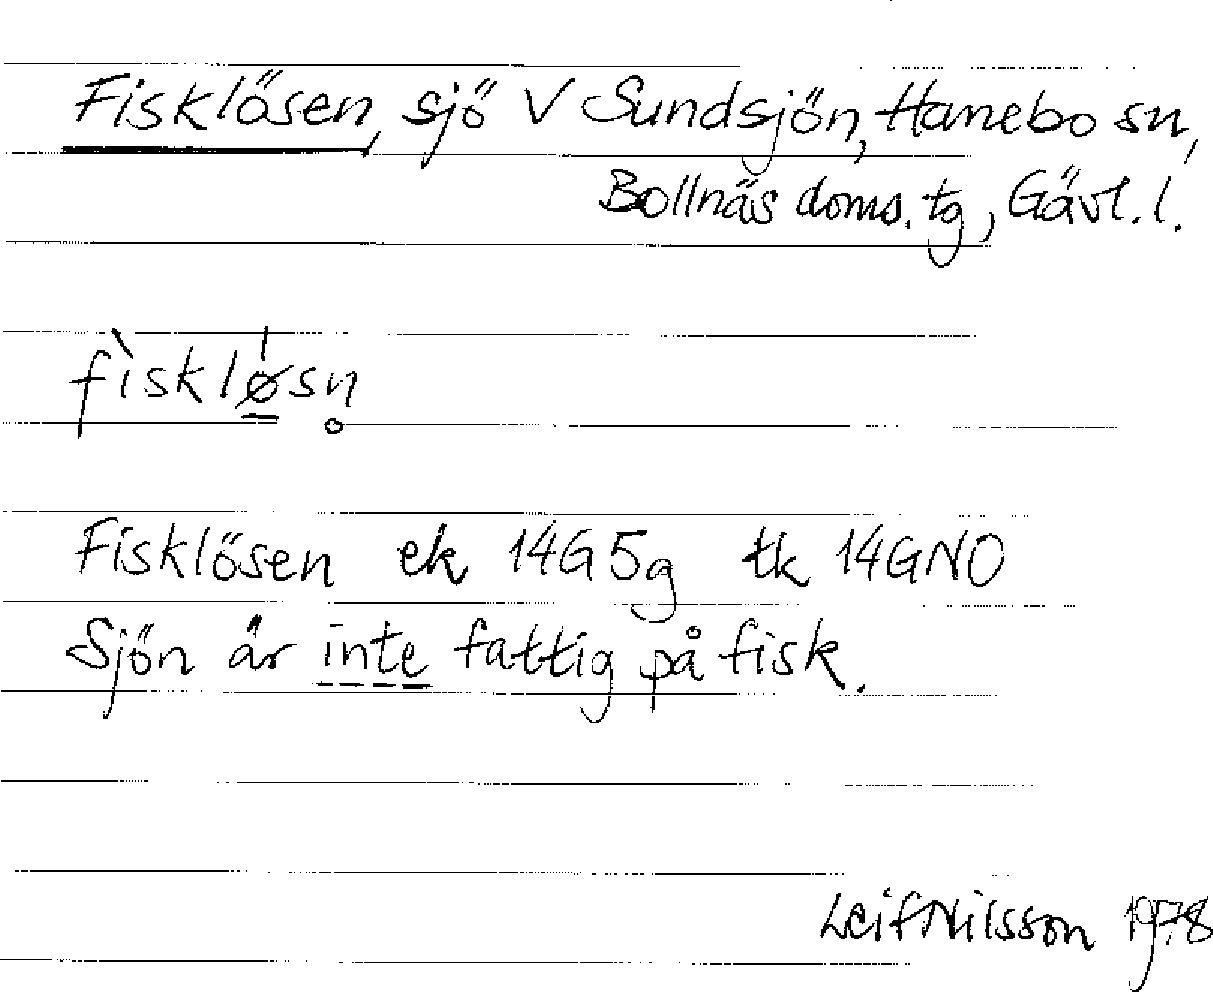 Fisklösen, sjö V Sundsjön, Hanebo sn,
Bollnäs doms. tg, Gävl. l.
fìsklǿ̲sn̥
Fisklösen ek 14G5g tk 14GNO
Sjön är inte fattig på fisk.
Leif Nilsson 1978